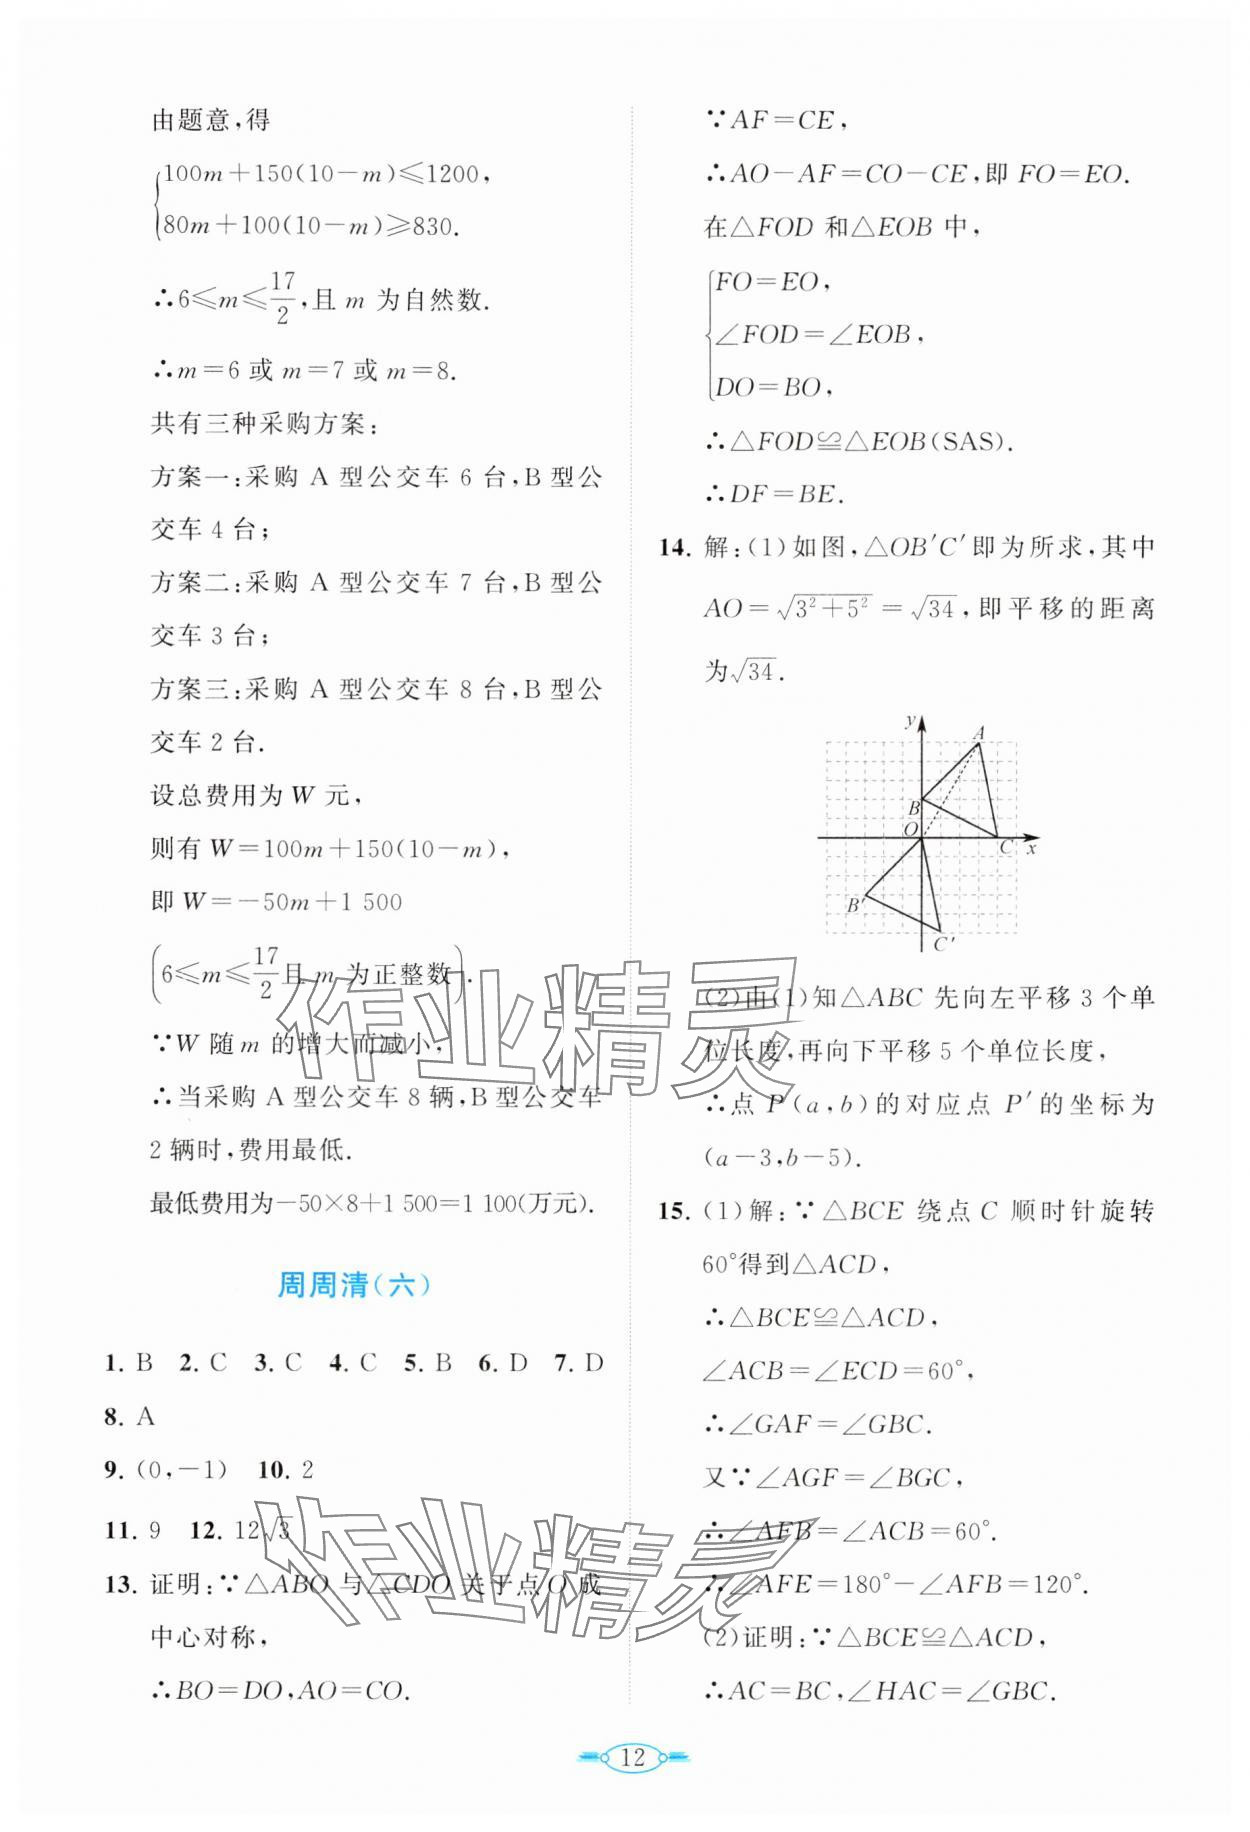 由题意,得
100m+150(10-m)≤1200,
80m+100(10-m)≥830.
∴6≤m≤17/2,且 m 为自然数.
∴m=6 或 m=7 或 m=8.
共有三种采购方案:
方案一:采购 A 型公交车 6 台,B 型公
交车 4 台;
方案二:采购 A 型公交车 7 台,B 型公
交车 3 台;
方案三:采购 A 型公交车 8 台,B 型公
交车 2 台.
设总费用为 W 元,
则有 W=100m+150(10-m),
即 W=-50m+1 500
(6≤m≤17/2且 m 为正整数).
∵W 随 m 的增大而减小,
∴当采购 A 型公交车 8 辆,B 型公交车
2 辆时,费用最低.
最低费用为-50×8+1 500=1 100(万元).
周周清(六)
1. B 2. C 3. C 4. C 5. B 6. D 7. D
8. A
9. (0,-1) 10. 2
11. 9 12. 12√3
13. 证明:∵△ABO 与△CDO 关于点 O 成
中心对称,
∴BO=DO,AO=CO.
∵AF=CE,
∴AO-AF=CO-CE,即 FO=EO.
在△FOD 和△EOB 中,
FO=EO,
∠FOD=∠EOB,
DO=BO,
∴△FOD≌△EOB(SAS).
∴DF=BE.
14. 解:(1)如图,△OB′C′即为所求,其中
AO=√(3²+5²)=√34,即平移的距离
为√34.
y
A
B
O
C
x
B′
C′
(2)由(1)知△ABC 先向左平移 3 个单
位长度,再向下平移 5 个单位长度,
∴点 P(a,b)的对应点 P′的坐标为
(a-3,b-5).
15. (1)解:∵△BCE 绕点 C 顺时针旋转
60°得到△ACD,
∴△BCE≌△ACD,
∠ACB=∠ECD=60°,
∴∠GAF=∠GBC.
又∵∠AGF=∠BGC,
∴∠AFB=∠ACB=60°.
∴∠AFE=180°-∠AFB=120°.
(2)证明:∵△BCE≌△ACD,
∴AC=BC,∠HAC=∠GBC.
12
作业精灵
作业精灵